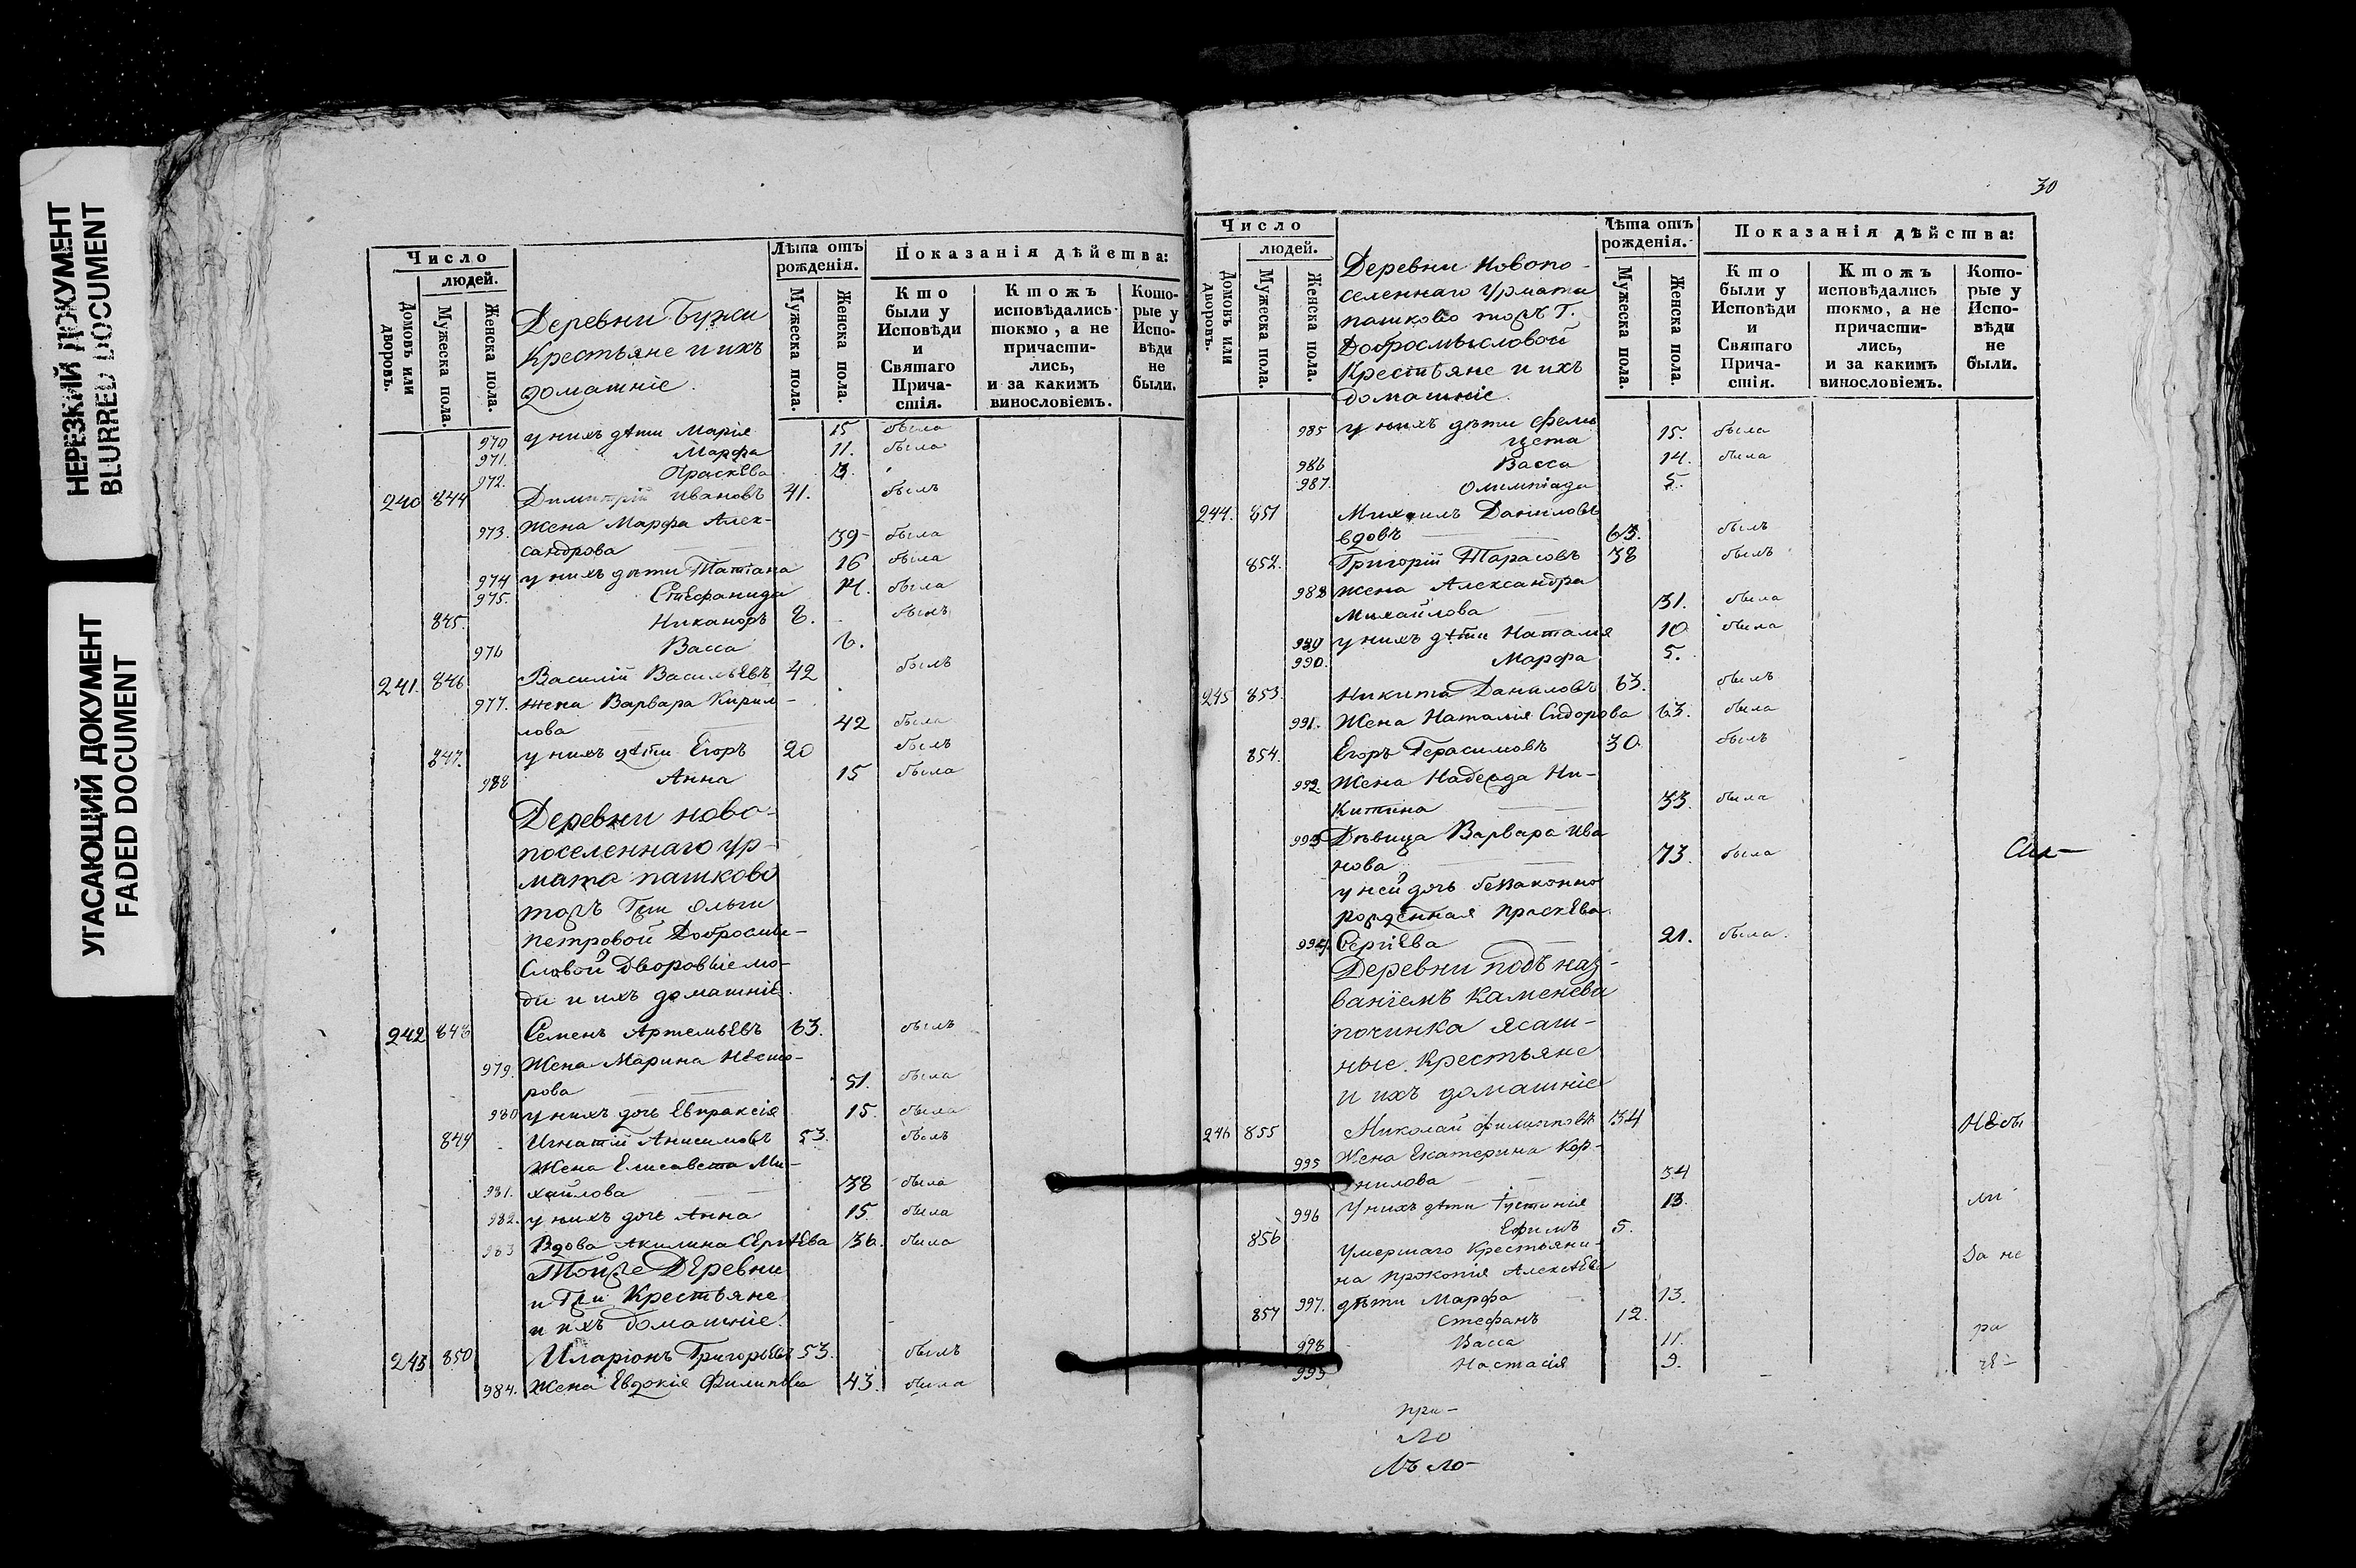 НЕРЕЗКИЙ ДОКУМЕНТ
BLURRED DOCUMENT
УГАСАЮЩИЙ ДОКУМЕНТ
FADED DOCUMENT
Число
людей.
Домовъ или дворовъ.
Мужеска пола.
Женска пола.
Деревни Бужи
Крестьяне и ихъ
домашніе.
Лѣта отъ рожденія.
Мужеска пола.
Женска пола.
Показанія дѣйства:
Кто были у Исповѣди и Святаго Причастія.
Ктожъ исповѣдались токмо, а не причастились, и за какимъ винословіемъ.
Которые у Исповѣди не были.
970 у нихъ дѣти Марія 15 была
971. Марфа 11. была
972. Праскева 3.
240 844 Димитрій Ивановъ 41. былъ
973. Жена Марфа Алек-
сандрова 39 была
974 у нихъ дѣти Татіана 16 была
975. Стефанида 14. была
845. Никаноръ 8. былъ
976 Васса 6.
241. 846 Василій Васильевъ 42 былъ
977. Жена Варвара Кирил-
лова 42 была
847. у нихъ дѣти Егоръ 20 былъ
978 Анна 15 была
Деревни ново-
поселеннаго Ур-
мата пашково
тожъ Гжи Ольги
Петровой Добросмы-
словой Дворовые лю-
ди и ихъ домашніе.
242 848 Семенъ Артемьевъ 63. былъ
979. Жена Марина Несто-
рова 51. была
980 у нихъ дочь Евпраксія 15. была
849 Игнатій Анисимовъ 53. былъ
Жена Елисавета Ми-
981. хайлова 38 была
982. у нихъ дочь Анна 15 была
983 Вдова Акилина Сергѣева 36. была
Тойже Деревни
и Гжи Крестьяне
и ихъ домашніе.
243 850 Иларіонъ Григорьевъ 53. былъ
984. Жена Евдокія Филипова 43. была
30
Число
людей.
Домовъ или дворовъ.
Мужеска пола.
Женска пола.
Деревни Новопо-
селеннаго Урмати
пашково тожъ Г.
Добросмысловой
Крестьяне и ихъ
домашніе.
Лѣта отъ рожденія.
Мужеска пола.
Женска пола.
Показанія дѣйства:
Кто были у Исповѣди и Святаго Причастія.
Ктожъ исповѣдались токмо, а не причастились, и за какимъ винословіемъ.
Которые у Исповѣди не были.
985 у нихъ дѣти
15. была
986 Васса 14. была
987. Олимпіада 5.
244. 851 Михаилъ Даниловъ
вдовъ 63. былъ
852. Григорій Тарасовъ 38 былъ
988 жена Александра
Михайлова 31. была
989 у нихъ дѣти Наталія 10 была
990. Марфа 5.
245 853. Никита Даниловъ 63. былъ
991. Жена Наталія Сидорова 63. была
854. Егоръ Герасимовъ 30. былъ
992. Жена Надежда Ни-
китина 33. была
993 Дѣвица Варвара Ива
нова 73. была
у ней дочь беззаконно
рожденная Праскева
994. Сергіева 21. была.
Деревни подъ наз-
ваніемъ Каменева
починка ясаш-
ные Крестьяне
и ихъ домашніе
246 855 Николай Филиповъ 34 Небы
995 Жена Екатерина Кор-
нилова 34
996 У нихъ дѣти Іустинія 13. ли
856 Ефимъ 5.
Умершаго Крестьяни-
на Прокопія Алексѣева За не
997. дѣти Марфа 13.
857 Стефанъ 12.
998 Васса 11. ра
999 Настасія 9.
при-
ло